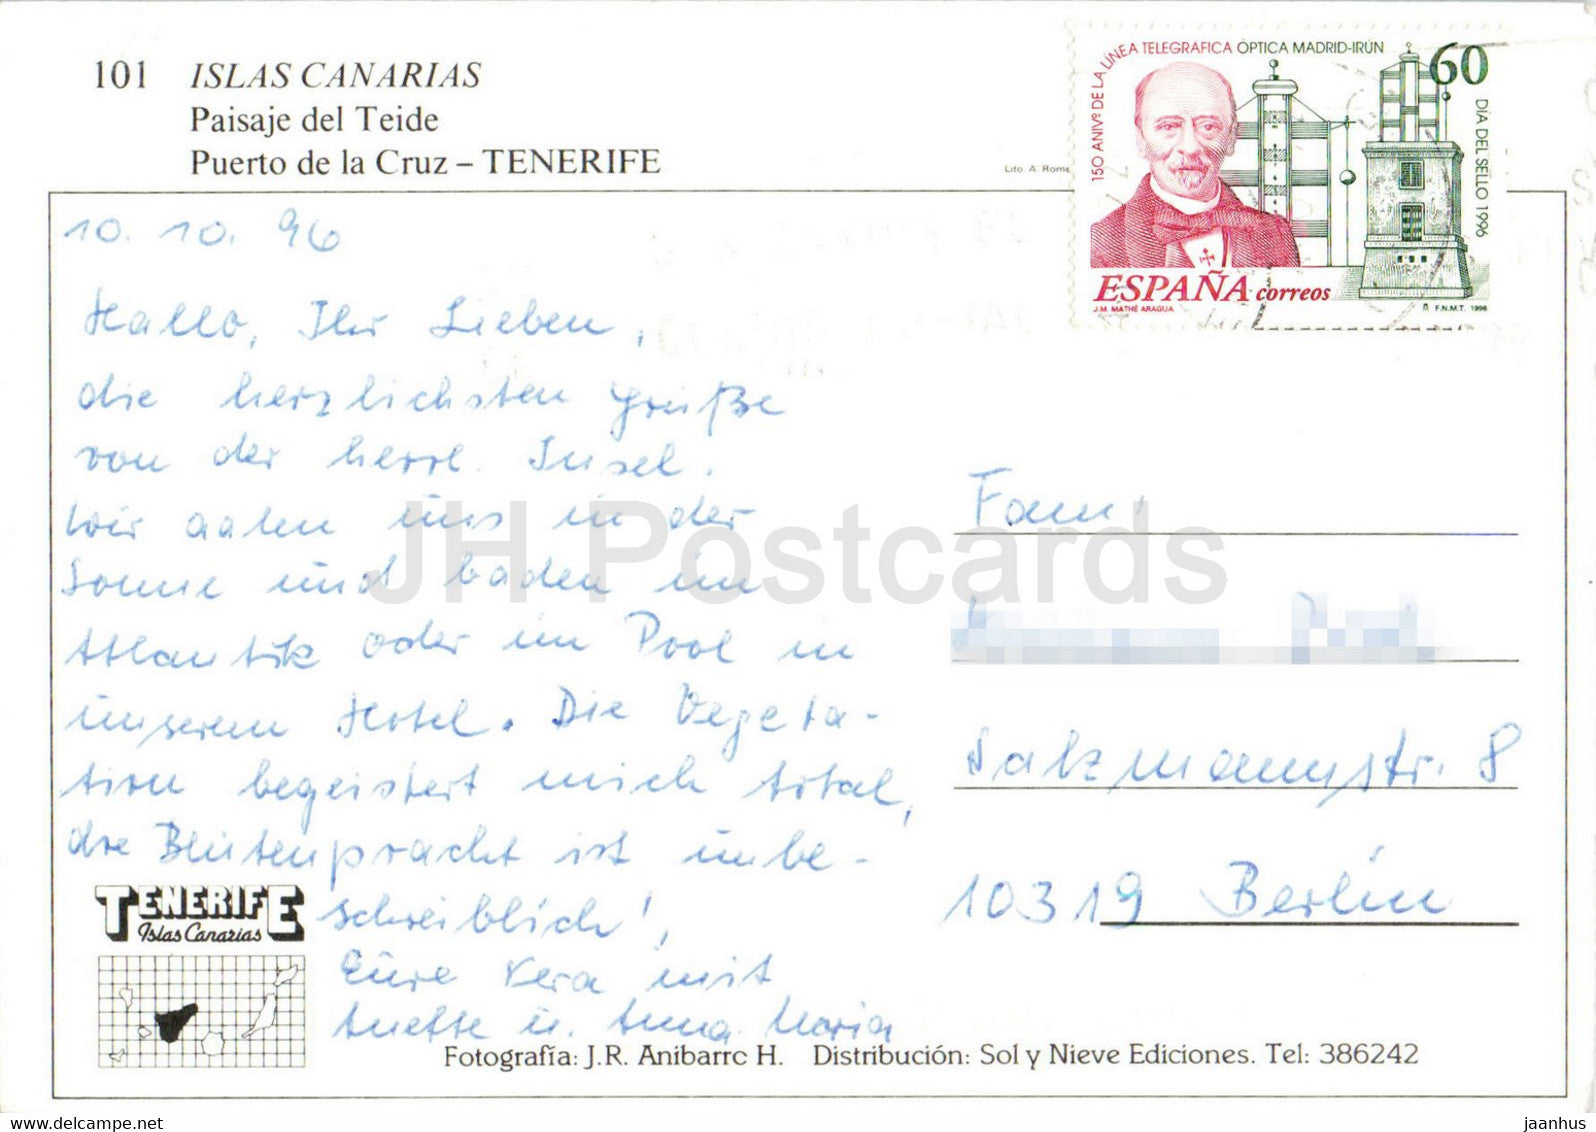 101 ISLAS CANARIAS
Paisaje del Teide
Puerto de la Cruz – TENERIFE
Lito. A. Rome
150 ANIVº DE LA LÍNEA TELEGRÁFICA ÓPTICA MADRID-IRÚN
60
DÍA DEL SELLO 1996
ESPAÑA correos
J.M. MATHÉ ARAGUA
F.N.M.T. 1996
10. 10. 96
Hallo, Ihr Lieben,
die herzlichsten Grüße
von der herrl. Insel.
Wir aalen uns in der
Sonne und baden im
Atlantik oder im Pool in
unserem Hotel. Die Vegeta-
tion begeistert mich total,
die Blütenpracht ist unbe-
schreiblich!
Eure Vera mit
u. Anna Maria
Fam.
Salzmannstr. 8
10319 Berlin
TENERIFE
Islas Canarias
Fotografía: J.R. Anibarro H. Distribución: Sol y Nieve Ediciones. Tel: 386242
JH Postcards
www.delcampe.net
jaanhus